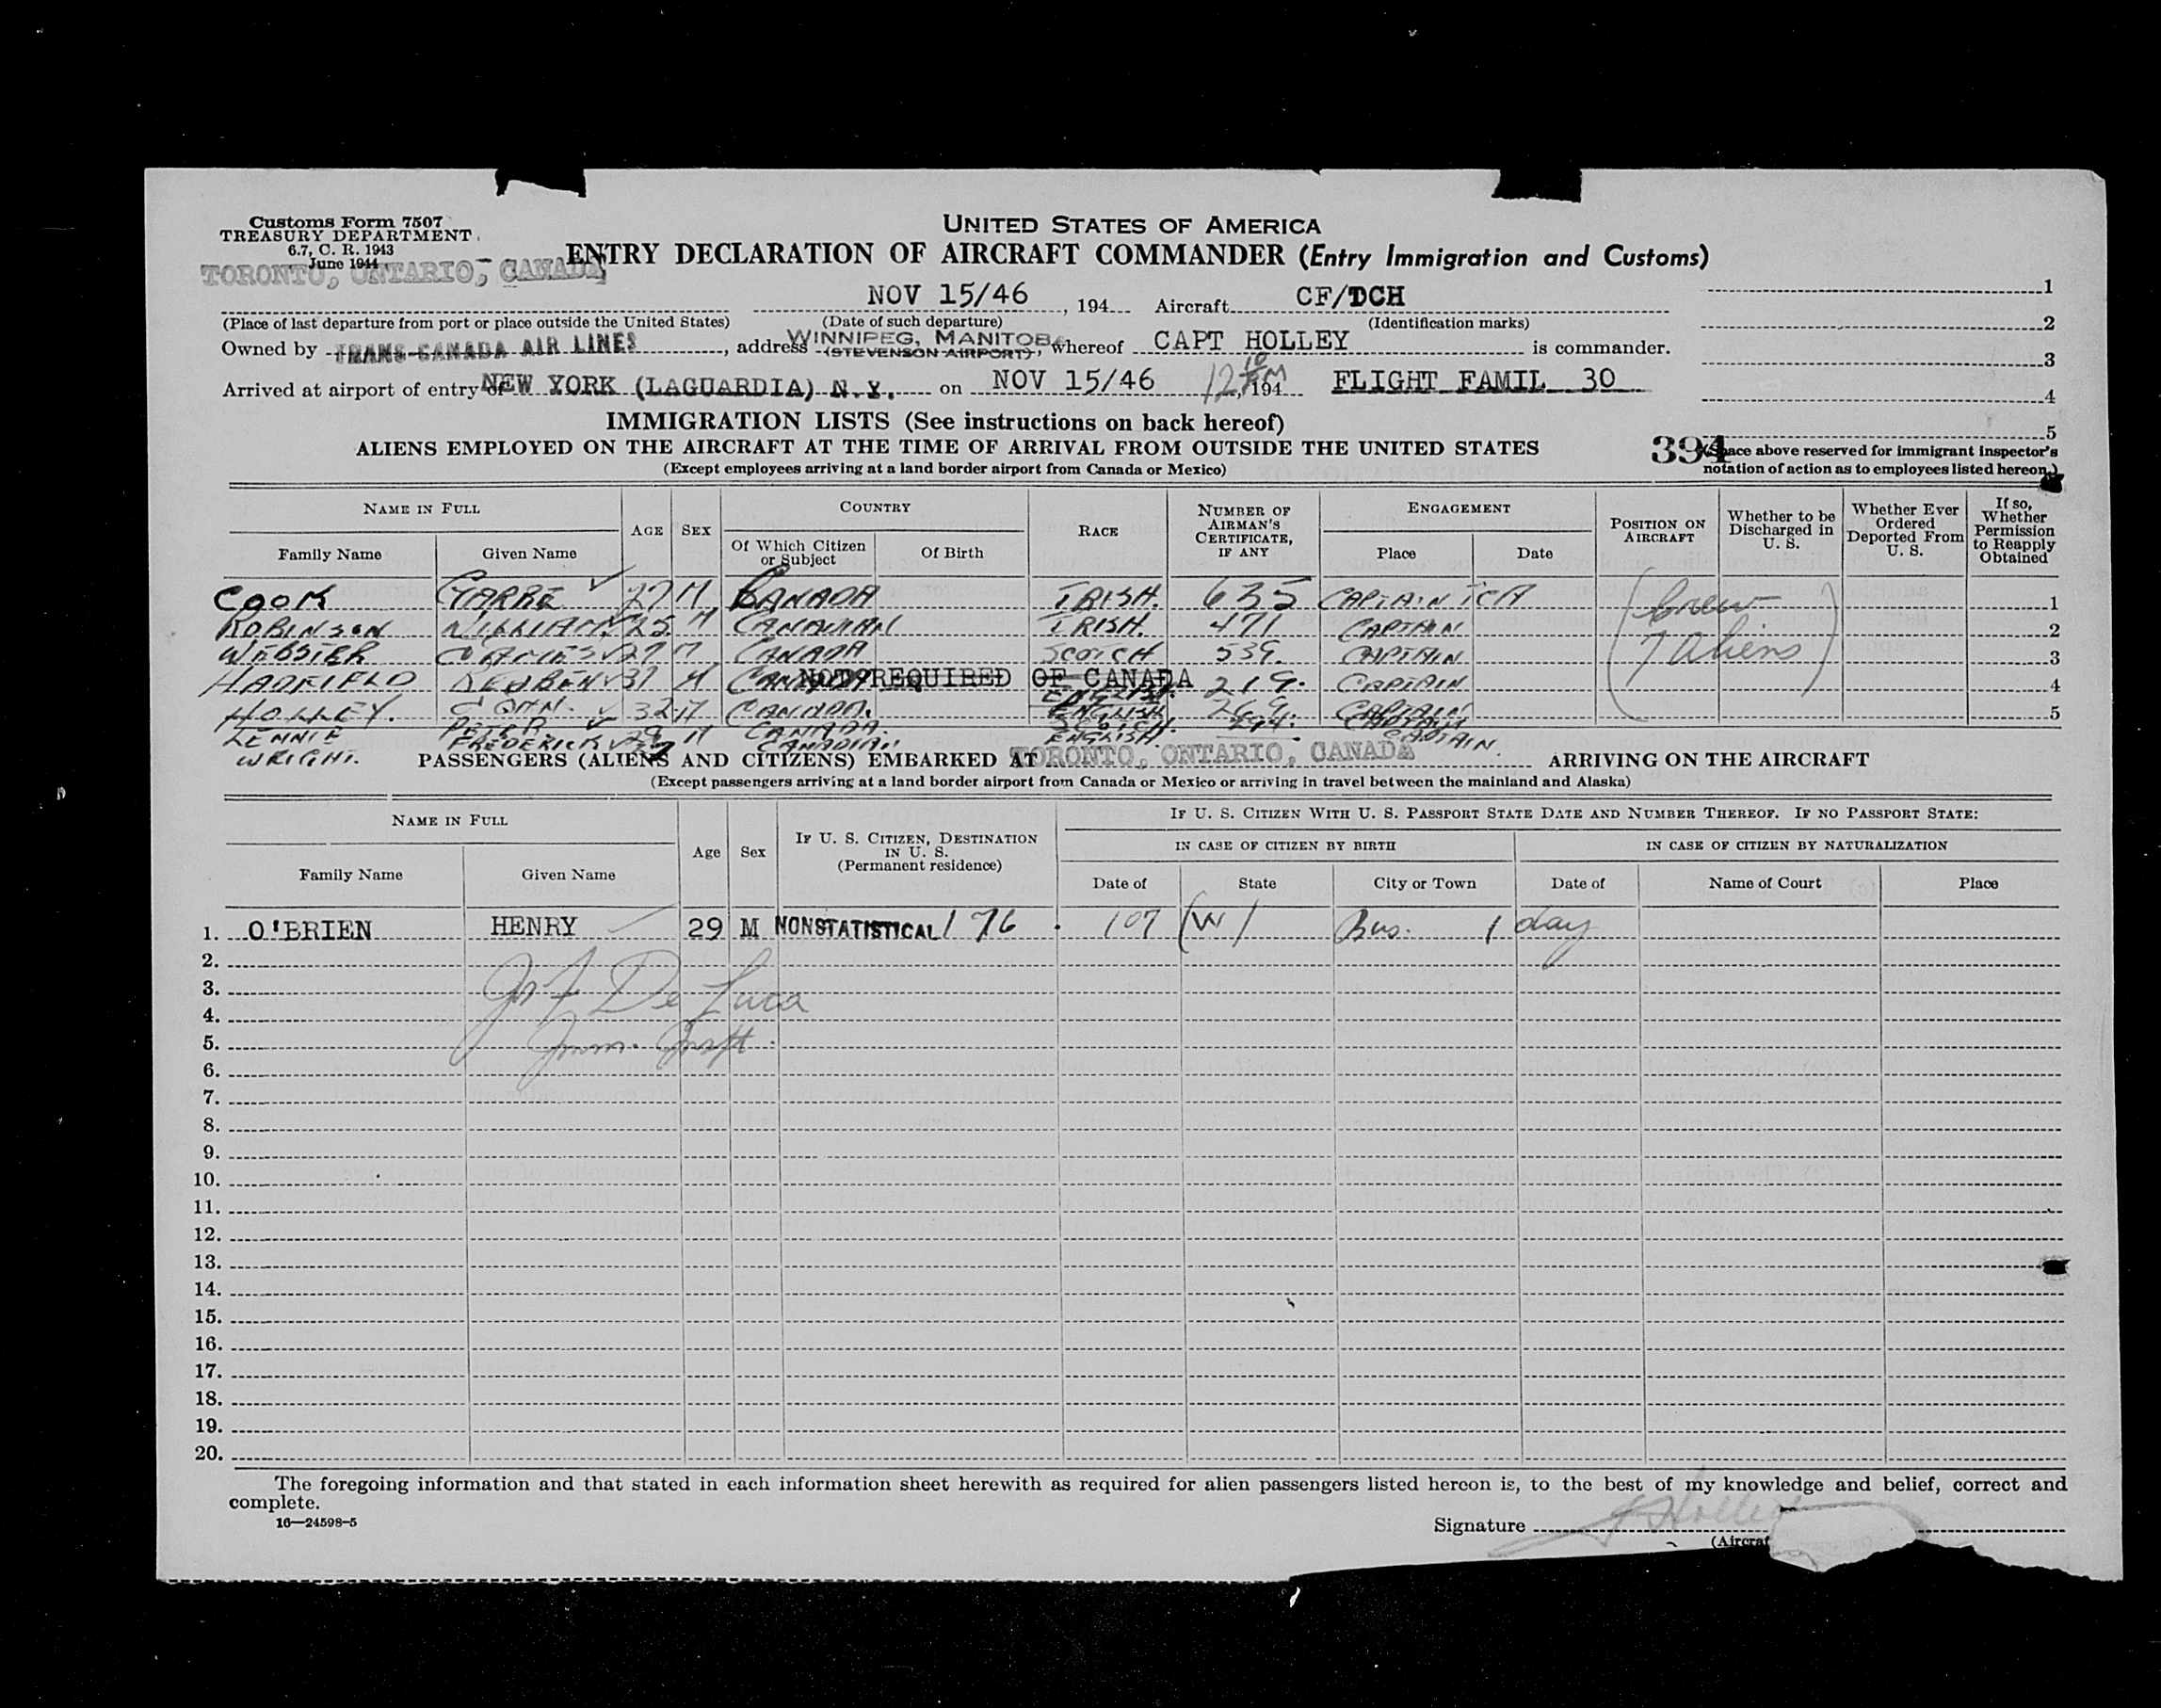 Customs Form 7507
TREASURY DEPARTMENT
6.7, C. R. 1943
June 1944
UNITED STATES OF AMERICA
ENTRY DECLARATION OF AIRCRAFT COMMANDER (Entry Immigration and Customs)
TORONTO, ONTARIO, CANADA
NOV 15/46, 194 Aircraft CF/DCH
(Place of last departure from port or place outside the United States) (Date of such departure) (Identification marks)
Owned by TRANS-CANADA AIR LINES, address WINNIPEG, MANITOBA (STEVENSON AIRPORT), whereof CAPT HOLLEY is commander.
Arrived at airport of entry of NEW YORK (LAGUARDIA) N.Y. on NOV 15/46, 194 FLIGHT FAMIL 30
1
2
3
4
5
IMMIGRATION LISTS (See instructions on back hereof)
ALIENS EMPLOYED ON THE AIRCRAFT AT THE TIME OF ARRIVAL FROM OUTSIDE THE UNITED STATES
(Except employees arriving at a land border airport from Canada or Mexico)
394
(Space above reserved for immigrant inspector's notation of action as to employees listed hereon.)
NAME IN FULL AGE SEX COUNTRY RACE NUMBER OF AIRMAN'S CERTIFICATE, IF ANY ENGAGEMENT POSITION ON AIRCRAFT Whether to be Discharged in U. S. Whether Ever Ordered Deported From U. S. If so, Whether Permission to Reapply Obtained
Family Name Given Name Of Which Citizen or Subject Of Birth Place Date
COOK 27 M CANADA IRISH. 635 CAPTAIN TCA (Crew 1
ROBINSON WILLIAM 25 M CANADIAN IRISH. 471 CAPTAIN 2
WEBSTER JAMES 27 M CANADA SCOTCH 539. CAPTAIN 7 Aliens) 3
HADFIELD REUBEN 37 M CANADA NOT REQUIRED OF CANADA ENGLISH. 219. CAPTAIN 4
HOLLEY. JOHN. 32 M CANADA. ENGLISH 269. CAPTAIN 5
LENNIE PETER R. 29 M CANADA. SCOTCH. 294. CAPTAIN
WRIGHT. FREDERICK CANADIAN ENGLISH. CAPTAIN.
PASSENGERS (ALIENS AND CITIZENS) EMBARKED AT TORONTO, ONTARIO, CANADA ARRIVING ON THE AIRCRAFT
(Except passengers arriving at a land border airport from Canada or Mexico or arriving in travel between the mainland and Alaska)
NAME IN FULL Age Sex IF U. S. CITIZEN, DESTINATION IN U. S. (Permanent residence) IF U. S. CITIZEN WITH U. S. PASSPORT STATE DATE AND NUMBER THEREOF. IF NO PASSPORT STATE:
IN CASE OF CITIZEN BY BIRTH IN CASE OF CITIZEN BY NATURALIZATION
Family Name Given Name Date of State City or Town Date of Name of Court Place
1. O'BRIEN HENRY 29 M NONSTATISTICAL 1 76 107 (W) Bus. 1 day
2.
3. De Luca
4.
5. Imm. Inspt.
6.
7.
8.
9.
10.
11.
12.
13.
14.
15.
16.
17.
18.
19.
20.
The foregoing information and that stated in each information sheet herewith as required for alien passengers listed hereon is, to the best of my knowledge and belief, correct and
complete.
16—24598-5
Signature J Holley
(Aircraf